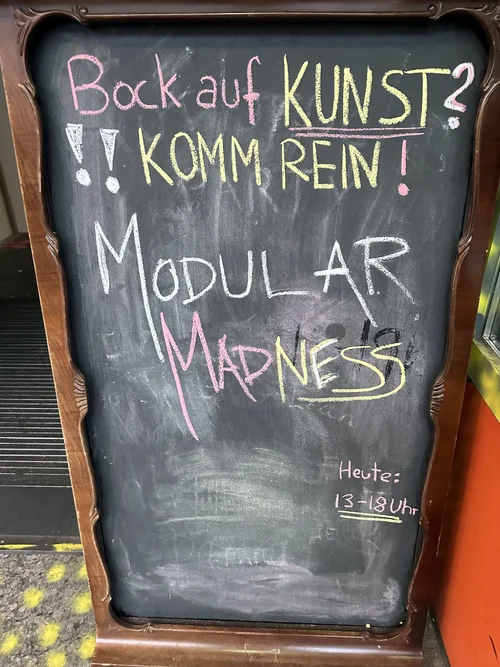 Bock auf KUNST?
!! KOMM REIN!
MODULAR
MADNESS
Heute:
13-18 Uhr